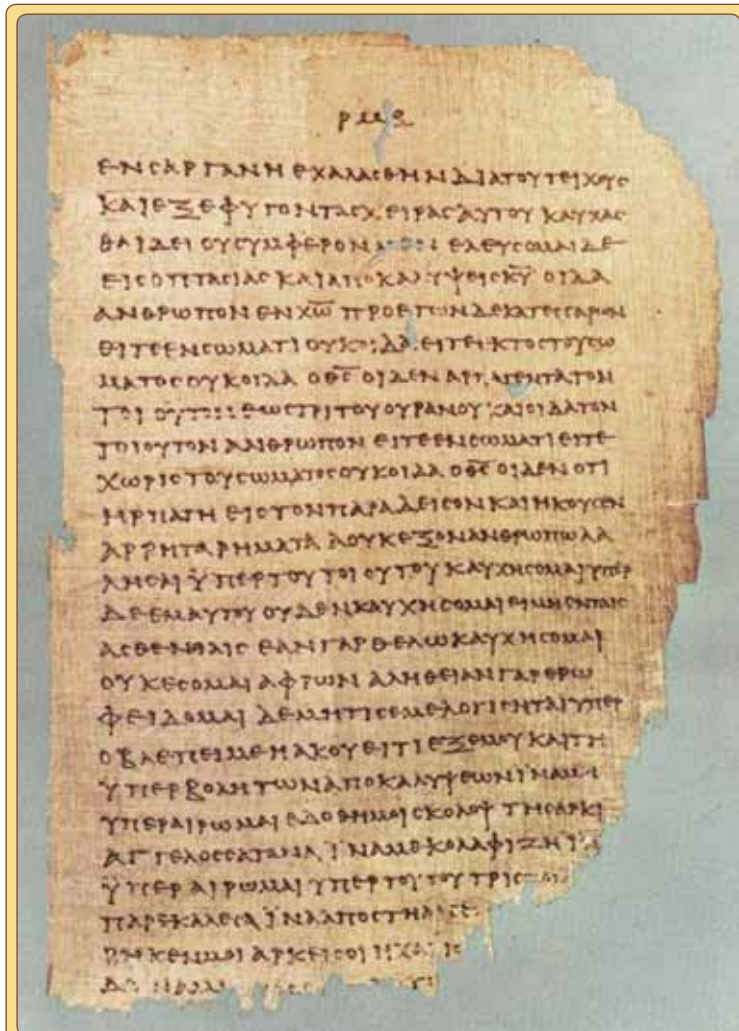 ρμε
ενϲαργανηεχαλαϲθηνδιατουτειχουϲ
καιεξεφυγονταϲχειραϲαυτουκαυχαϲ
θαιδειουϲυμφερον ελευϲομαιδε
ειϲοπταϲιαϲκαιαποκαλυψειϲκ̅υ̅οιδα
ανθρωπονενχ̅ω̅προετωνδεκατεϲϲαρων
ειτεενϲωματιουκοιδαειτεεκτοϲτουϲω
ματοϲουκοιδαοθ̅ϲ̅οιδεναρπαγεντατον
τοιουτονεωϲτριτουουρανουκαιοιδατον
τοιουτονανθρωπονειτεενϲωματιειτε
χωριϲτουϲωματοϲουκοιδαοθ̅ϲ̅οιδενοτι
ηρπαγηειϲτονπαραδειϲονκαιηκουϲεν
αρρηταρηματααουκεξονανθρωπωλα
ληϲαιϋπερτουτοιουτουκαυχηϲομαιυπερ
δεεμαυτουουδενκαυχηϲομαιειμηενταιϲ
αϲθενειαιϲεανγαρθελωκαυχηϲομαι
ουκεϲομαιαφρωναληθειανγαρερω
φειδομαιδεμητιϲεμελογιϲηταιυπερ
οβλεπειμεηακουειτιεξεμουκαιτη
ϋπερβολητωναποκαλυψεωνϊναμη
υπεραιρωμαιεδοθημοιϲκολοψτηϲαρκι
αγγελοϲϲαταναϊναμεκολαφιζηϊνα
ϋπεραιρωμαιυπερτουτουτριϲ
παρεκαλεϲαϊνααποστη
ρηκενμοιαρκειϲοιηχα